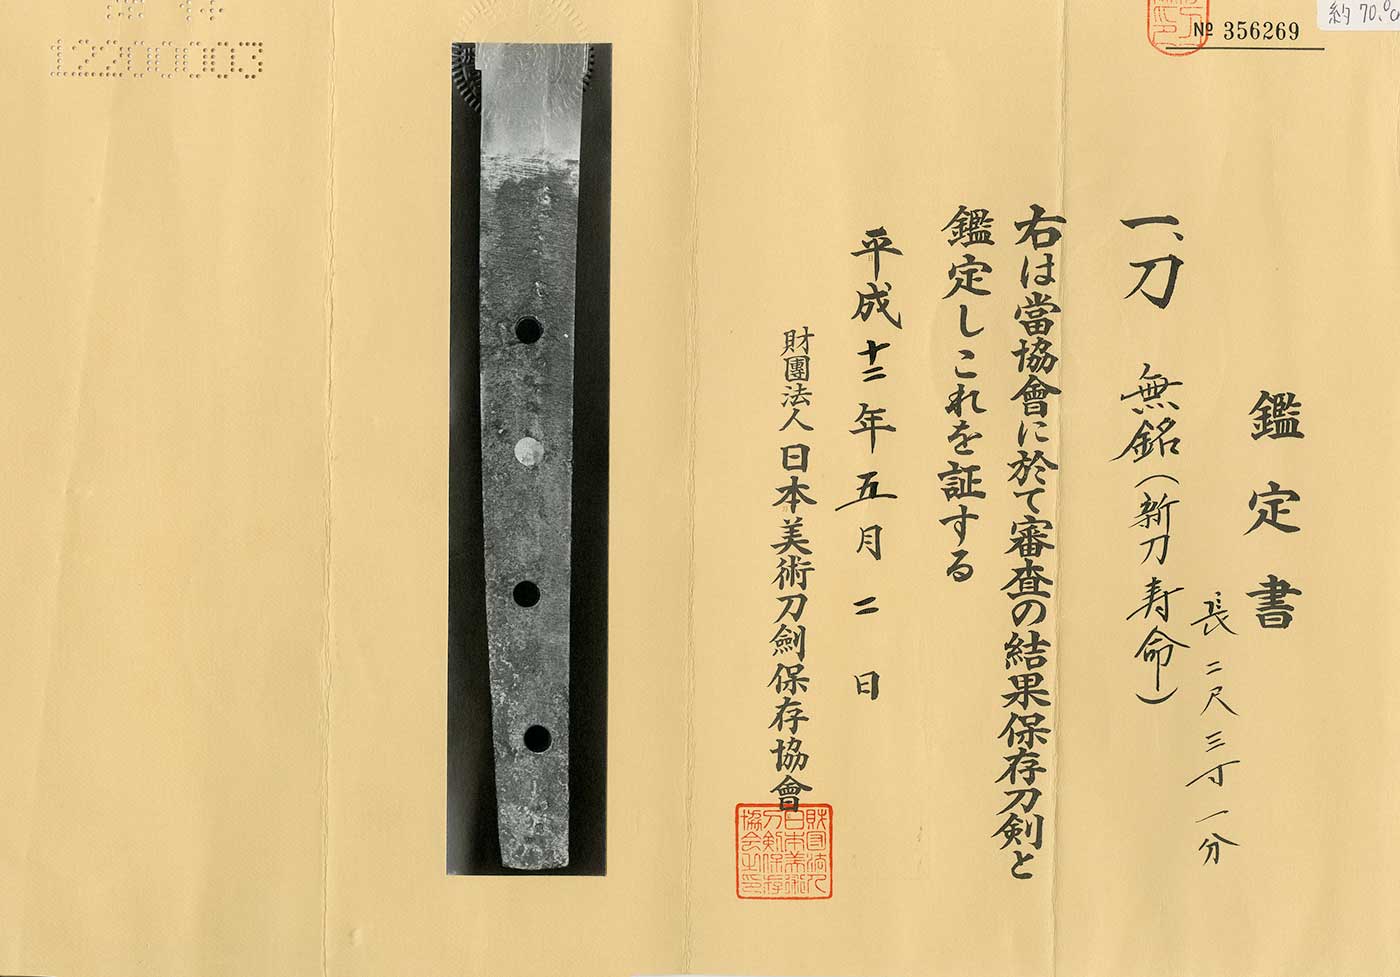 約70.0c
№ 356269
鑑定書
長二尺三寸一分
一、刀 無銘(新刀寿命)
右は當協會に於て審査の結果保存刀剣と
鑑定しこれを証する
平成十二年五月二日
財團法人日本美術刀劍保存協會
財団法人
日本美術
刀剣保存
協会之印
12 14
12200003